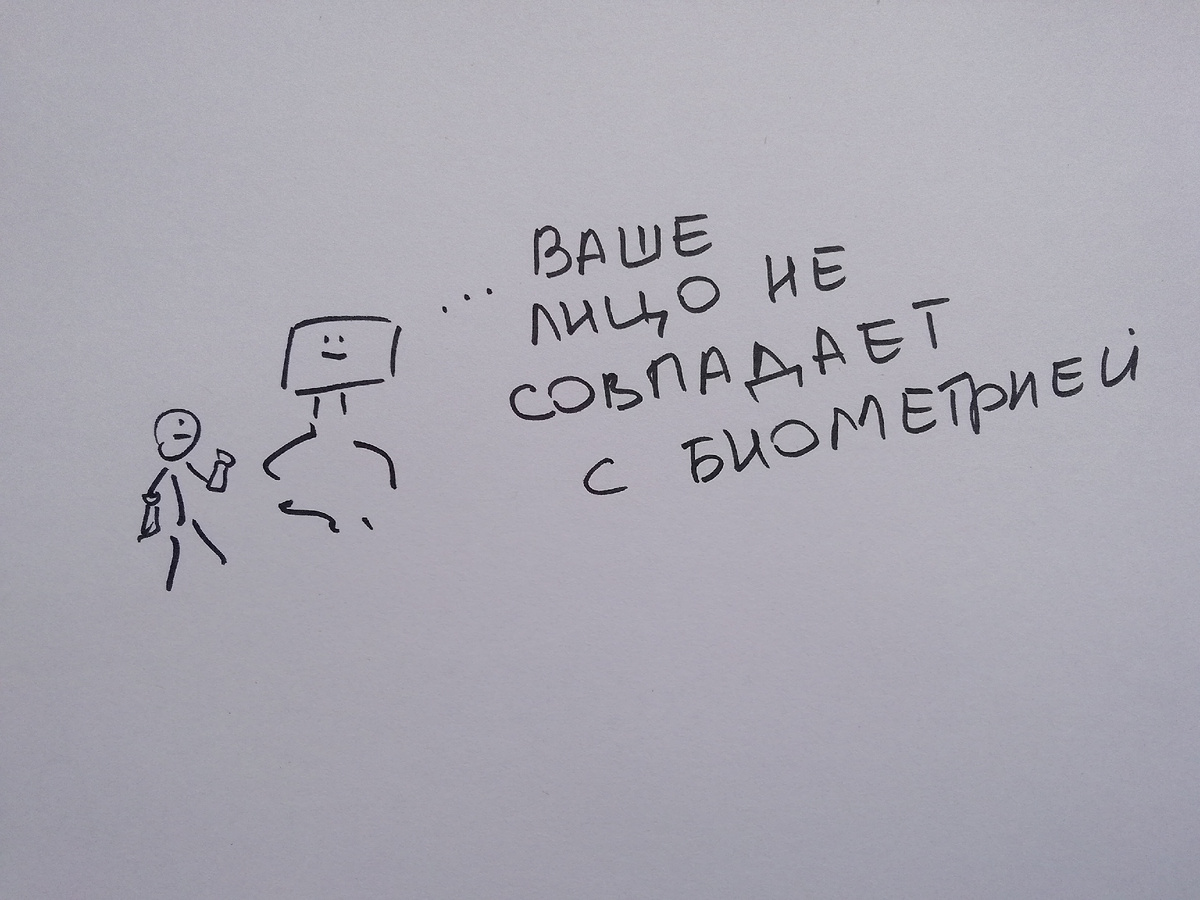 ... ВАШЕ
ЛИЦО НЕ
СОВПАДАЕТ
С БИОМЕТРИЕЙ